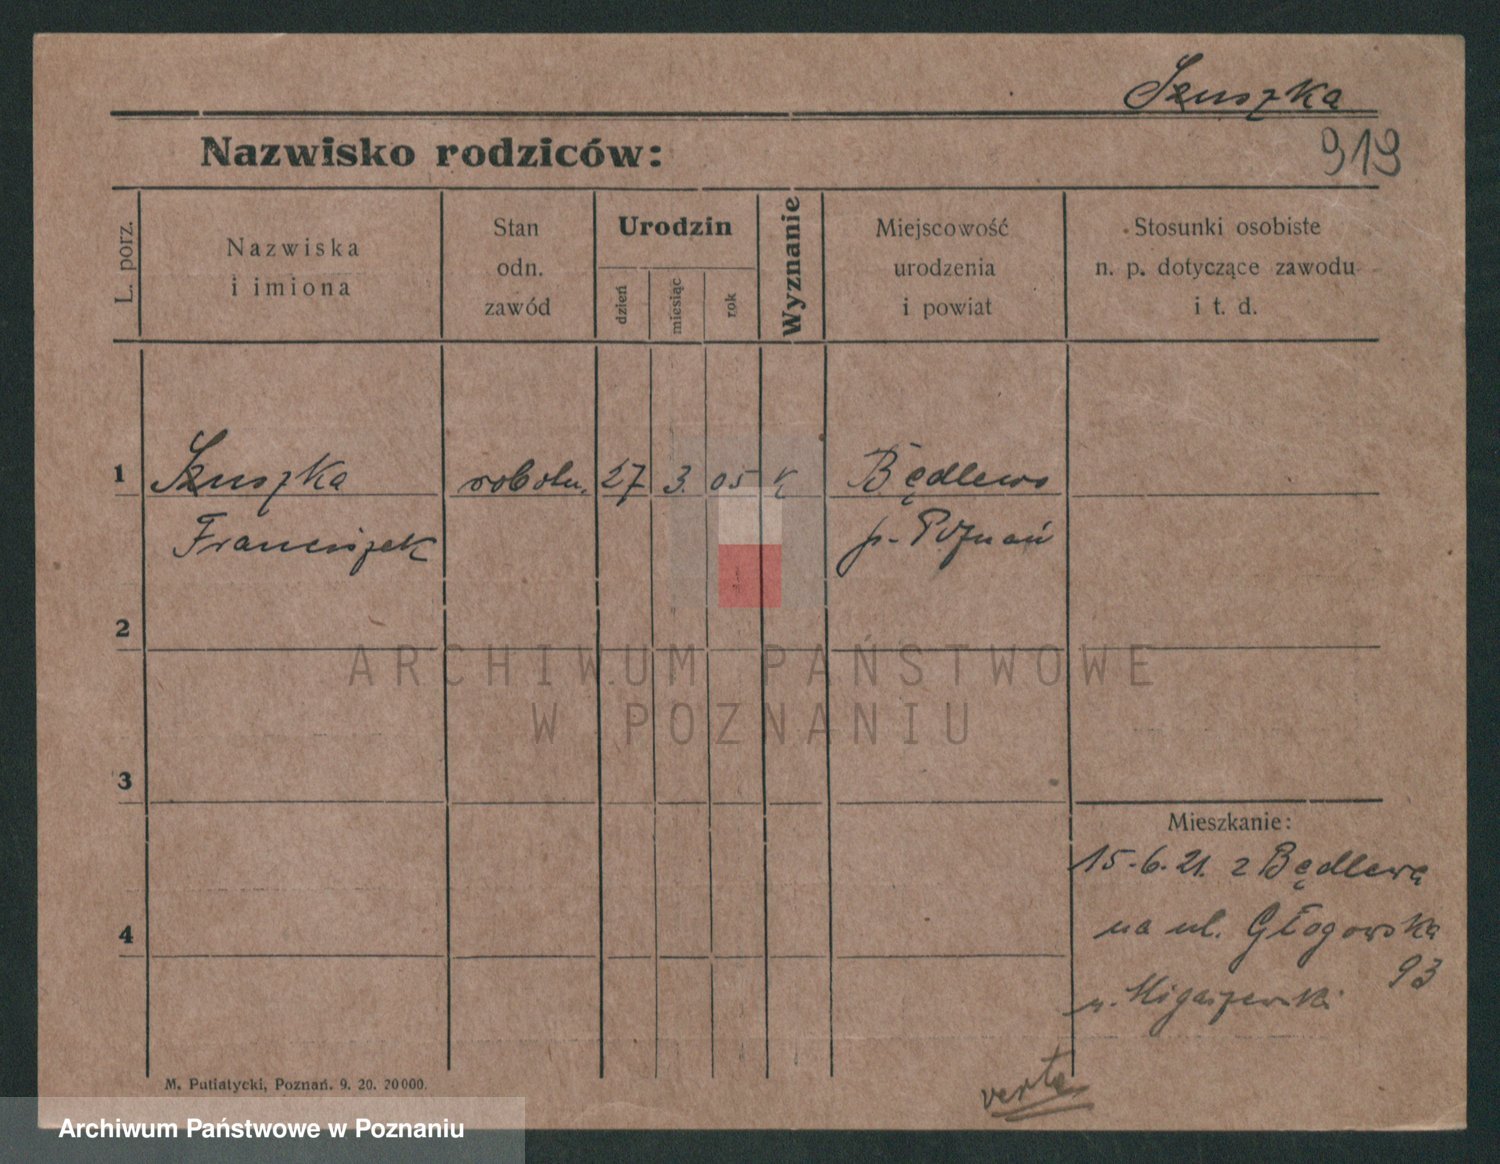 Szuszka
919
Nazwisko rodziców:
L. porz.
Nazwiska
i imiona
Stan
odn.
zawód
Urodzin
dzień
miesiąc
rok
Wyznanie
Miejscowość
urodzenia
i powiat
Stosunki osobiste
n. p. dotyczące zawodu
i t. d.
1
Szuszka robotn. 27 3. 05 k Będlewo
Franciszek p. Poznań
2
ARCHIWUM PAŃSTWOWE
W POZNANIU
3
Mieszkanie:
15.6.21. z Będlewa
4
na ul. Głogowska
93
u. Migaszewski
verte
M. Putiatycki, Poznań. 9. 20. 20000.
Archiwum Państwowe w Poznaniu